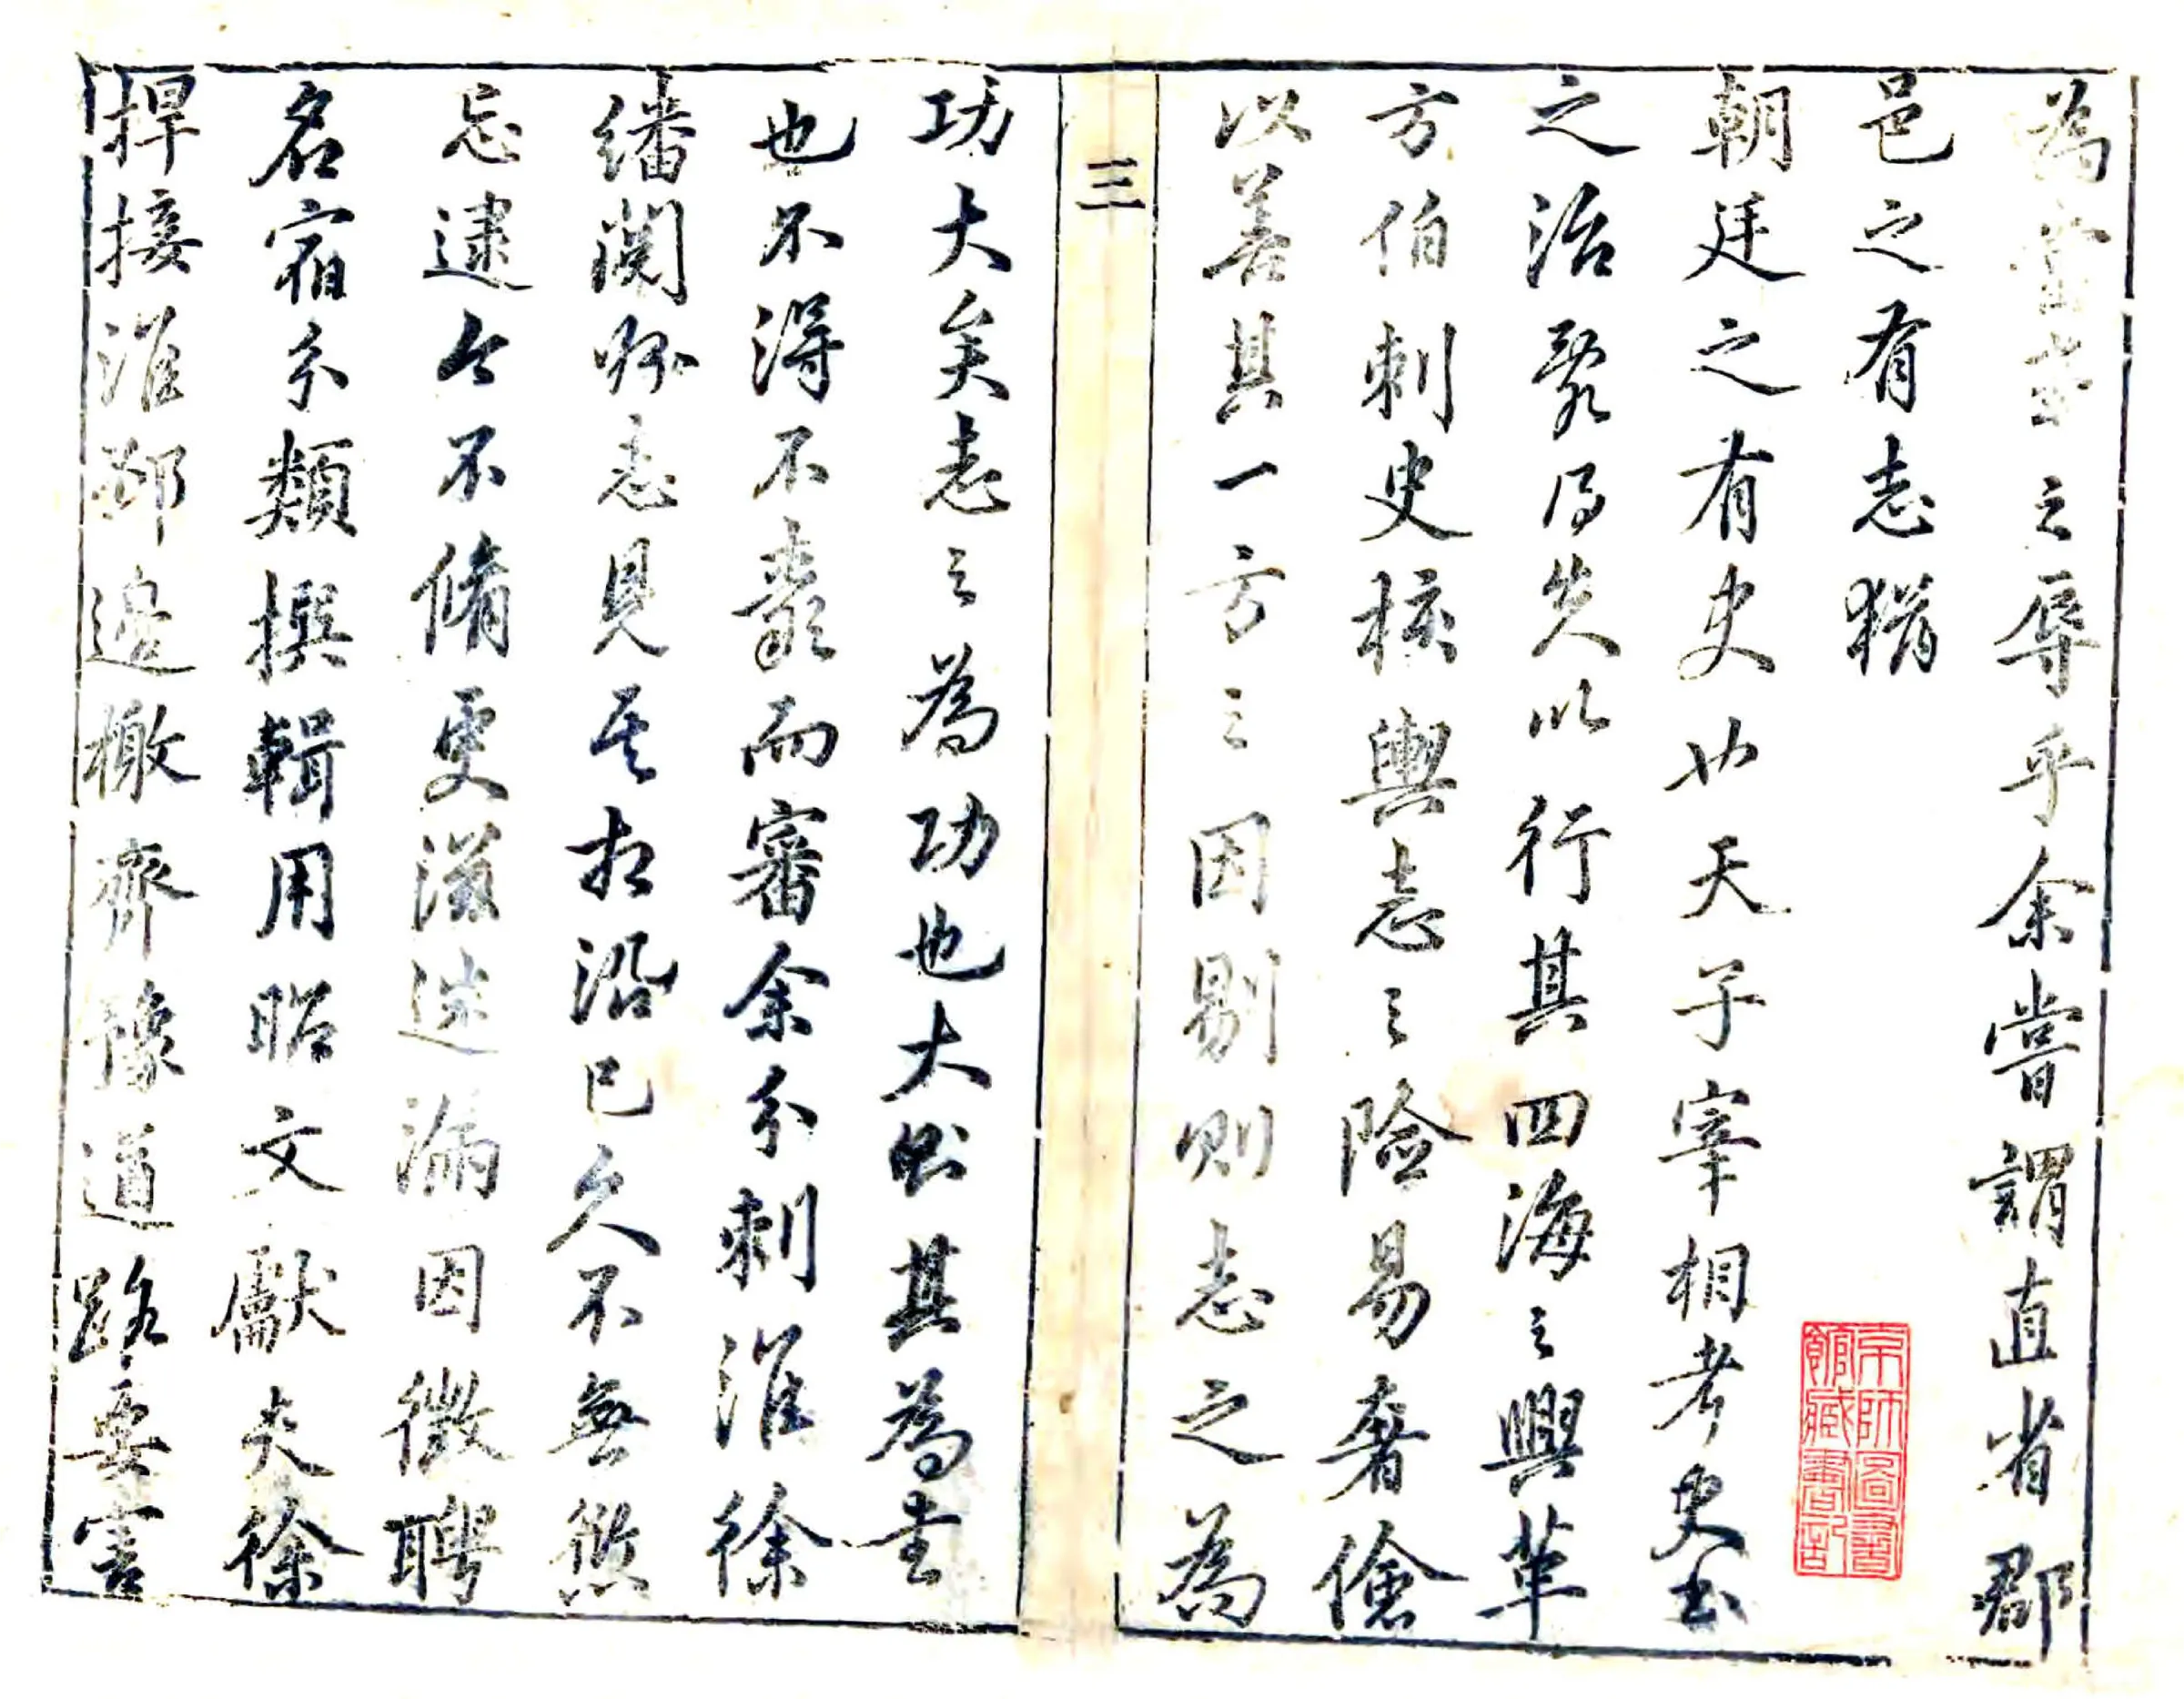 為當之辱乎余嘗謂直省郡
邑之有志猶
朝廷之有史也天子宰相考史書
之治亂得失以行其四海之興革
方伯刺史核輿志之險易奢儉
以善其一方之因剔則志之為
三
功大矣志之為功也大則其為書
也不得不覈而審余分刺淮徐
繙閱所志見其相沿已久不無
忘逮今不脩更滋遺漏因徵聘
名宿分類撰輯用昭文獻夫徐
捍接淮邳邊檄齊豫道路要害
京師圖書
館藏書記